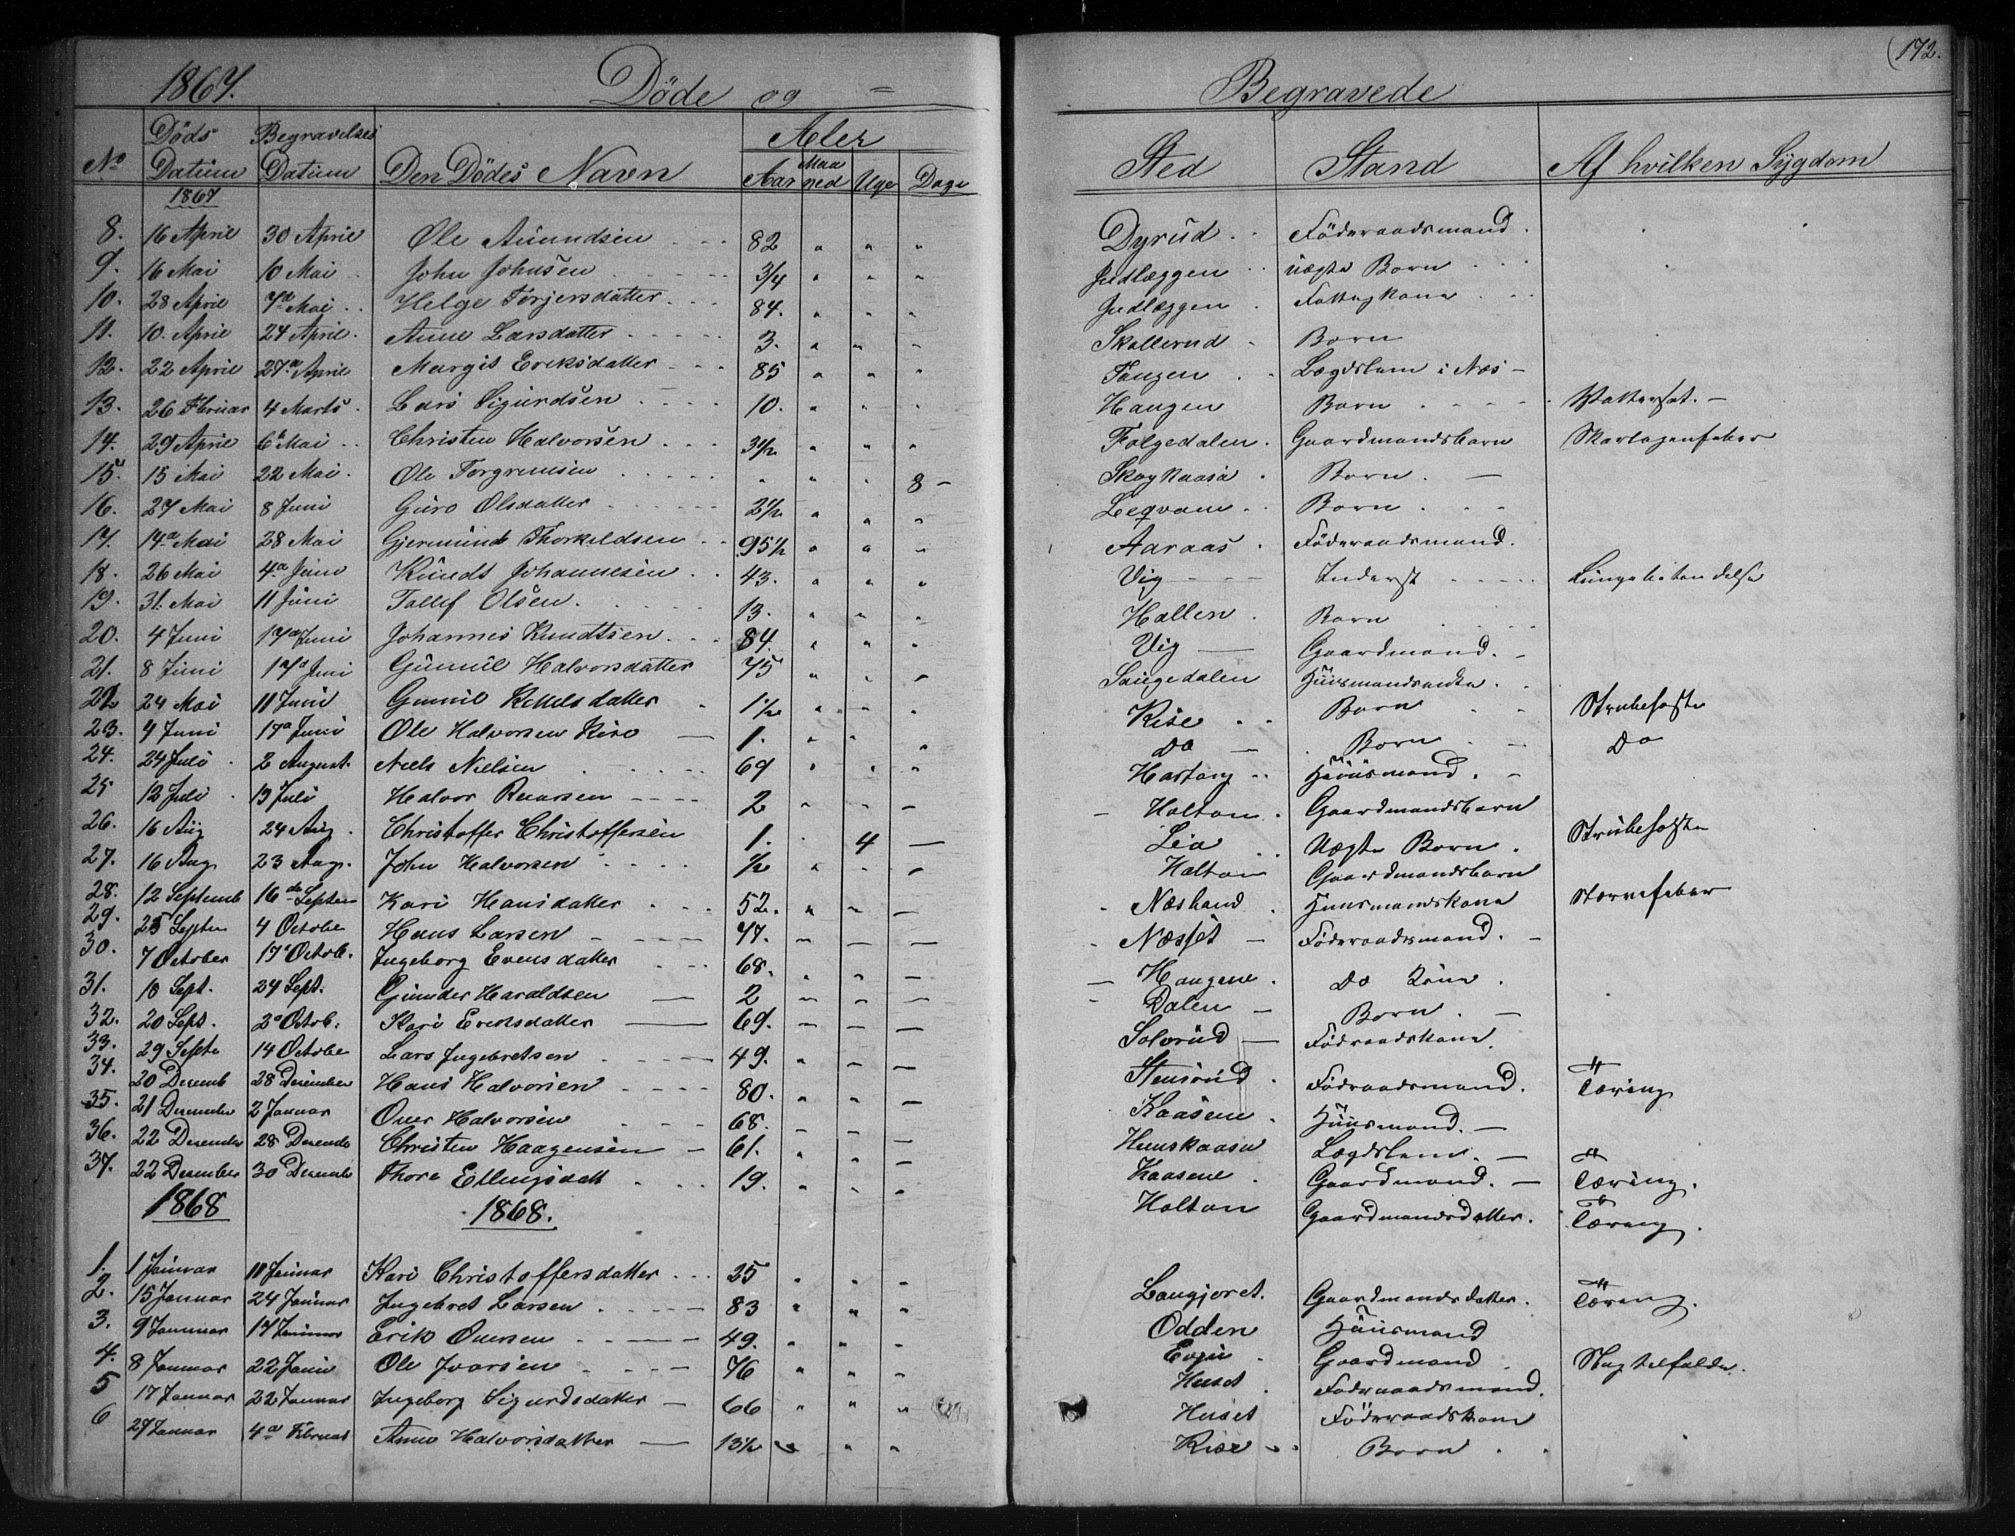 1867. Döde og = Begravede (172.
No Döds Datum Begravelses Datum Den Dödes Navn Aler Aar Maaned Uge Dage Sted Stand Af hvilken Sygdom
1867
8. 16 April 30 April Ole Amundsen 82 " " " Dyrud Föderaadsmand.
9. 16 Mai 10 Mai John Johnsen 3/4 " " " Indlæggen uægte Barn
10. 28 April 7de Mai Helge Torjersdatter 84. " " " Indlæggen Fattigkone
11. 10. April 24 April. Anne Larsdatter 3. " " " Skallerud Barn
12. 22 April 27de April Margit Eriksdatter 85 " " " Tangen Lægdslem i Næs
13. 26 Februar 4 Marts Lars Sigurdsen 10. " " " Haugen Barn Vattersot.
14. 29 April 6te Mai Christen Halvorsen 3 1/2 " " " Folgedalen Gaardmandsbarn Skarlagensfeber
15. 15 Mai 22 Mai. Ole Torgrimsen " " " 8 Skogkaasa Barn.
16. 27 Mai 8 Juni Guro Olsdatter 2 1/2 " " " Leqvam Barn
17. 14de Mai 28 Mai Gjermund Thorkildsen 95 1/2 " " " Aaraas Föderaadsmand.
18. 26 Mai 4de Juni Knudt Johannesen 43. " " " Vig Inderst Lungebetændelse
19. 31. Mai 11 Juni Tollef Olsen. 13. " " " Hallen Barn
20. 4 Juni 17de Juni Johannis Knudtsen 84. " " " Vig Gaardmand.
21. 8 Juni 17de Juni Gunnil Halvorsdatter 75 " " " Saugedalen Huusmandsenke.
22 24 Mai 11 Juni Gunnil Kittelsdatter 1 1/2 " " " Rise Barn Strubehoste
23. 4 Juni 17de Juni Ole Halvorsen Rise 1. " " " Do Barn Do
24. 24 Juli 2 August. Niels Nielsen 69 " " " Huusmand.
25 12 Juli 19 Juli Halvor Ruarsen 2 " " " Holtan Gaardmandsbarn
26. 16 Aug 24 Aug. Christoffer Christoffersen 1. 4 Lia Uægte Barn. Strubehoste
27. 16 Aug 23 Aug. John Halvorsen 1/2 " " " Holtan Gaardmandsbarn
28. 12 Septemb 16de Septem Kari Hansdatter 52. " " " Næsland Huusmandskone Nervefeber
29. 25 Septe 4 Octobe Hans Larsen 77. " " " Næsset Föderaadsmand.
30. 7 October 17de Octob. Ingeborg Evensdatter 68. " " " Haugene. Do Kone.
31. 10 Sept. 24 Sept. Gunder Haraldsen 2 " " " Dalen Barn.
32. 20 Sept. 2de Octob. Kari Eriksdatter 69. " " " Solorud Födraadskone.
33. 29 Septe 14 Octobe Lars Ingebretsen 49. " " "
34. 20 Decemb 28 December Hans Halvorsen 80. " " " Stensrud Födraadsmand. Tæring
35. 21 December 2 Januar Over Halvorsen 68. " " " Kaasene Huusmand.
36. 22 December 28 Decembe Christen Haagensen 61. " " " Huuskaasa Lægdslem.
37. 22 December 30 Decembe Thore Ellingsdatt 19. " " " Kaasene Gaardmand. Tæring.
1868 1868. Holtan Gaardmandsdatter. Tæring.
1. 1 Januar 11 Januar Kari Christoffersdatter 25 " " " Langjoret. Gaardmandsdatter. Tæring.
2. 15 Januar 24 Januar Ingebret Larsen 83 " " " Odden Huusmand
3. 9 Januar 17 Januar Erik Oversen 49. " " " Evju Gaardmand Slagtilfælde.
4. 8 Januar 22 Janu Ole Ivarsen 76 " " " Huset Föderaadsmand.
5 17 Januar 22 Januar Ingeborg Sigurdsdatter 66 " " " Huset Föderaadskone
6 27 Januar 4de Februar Anne Halvorsdatter 13 1/2 " " " Rise Barn